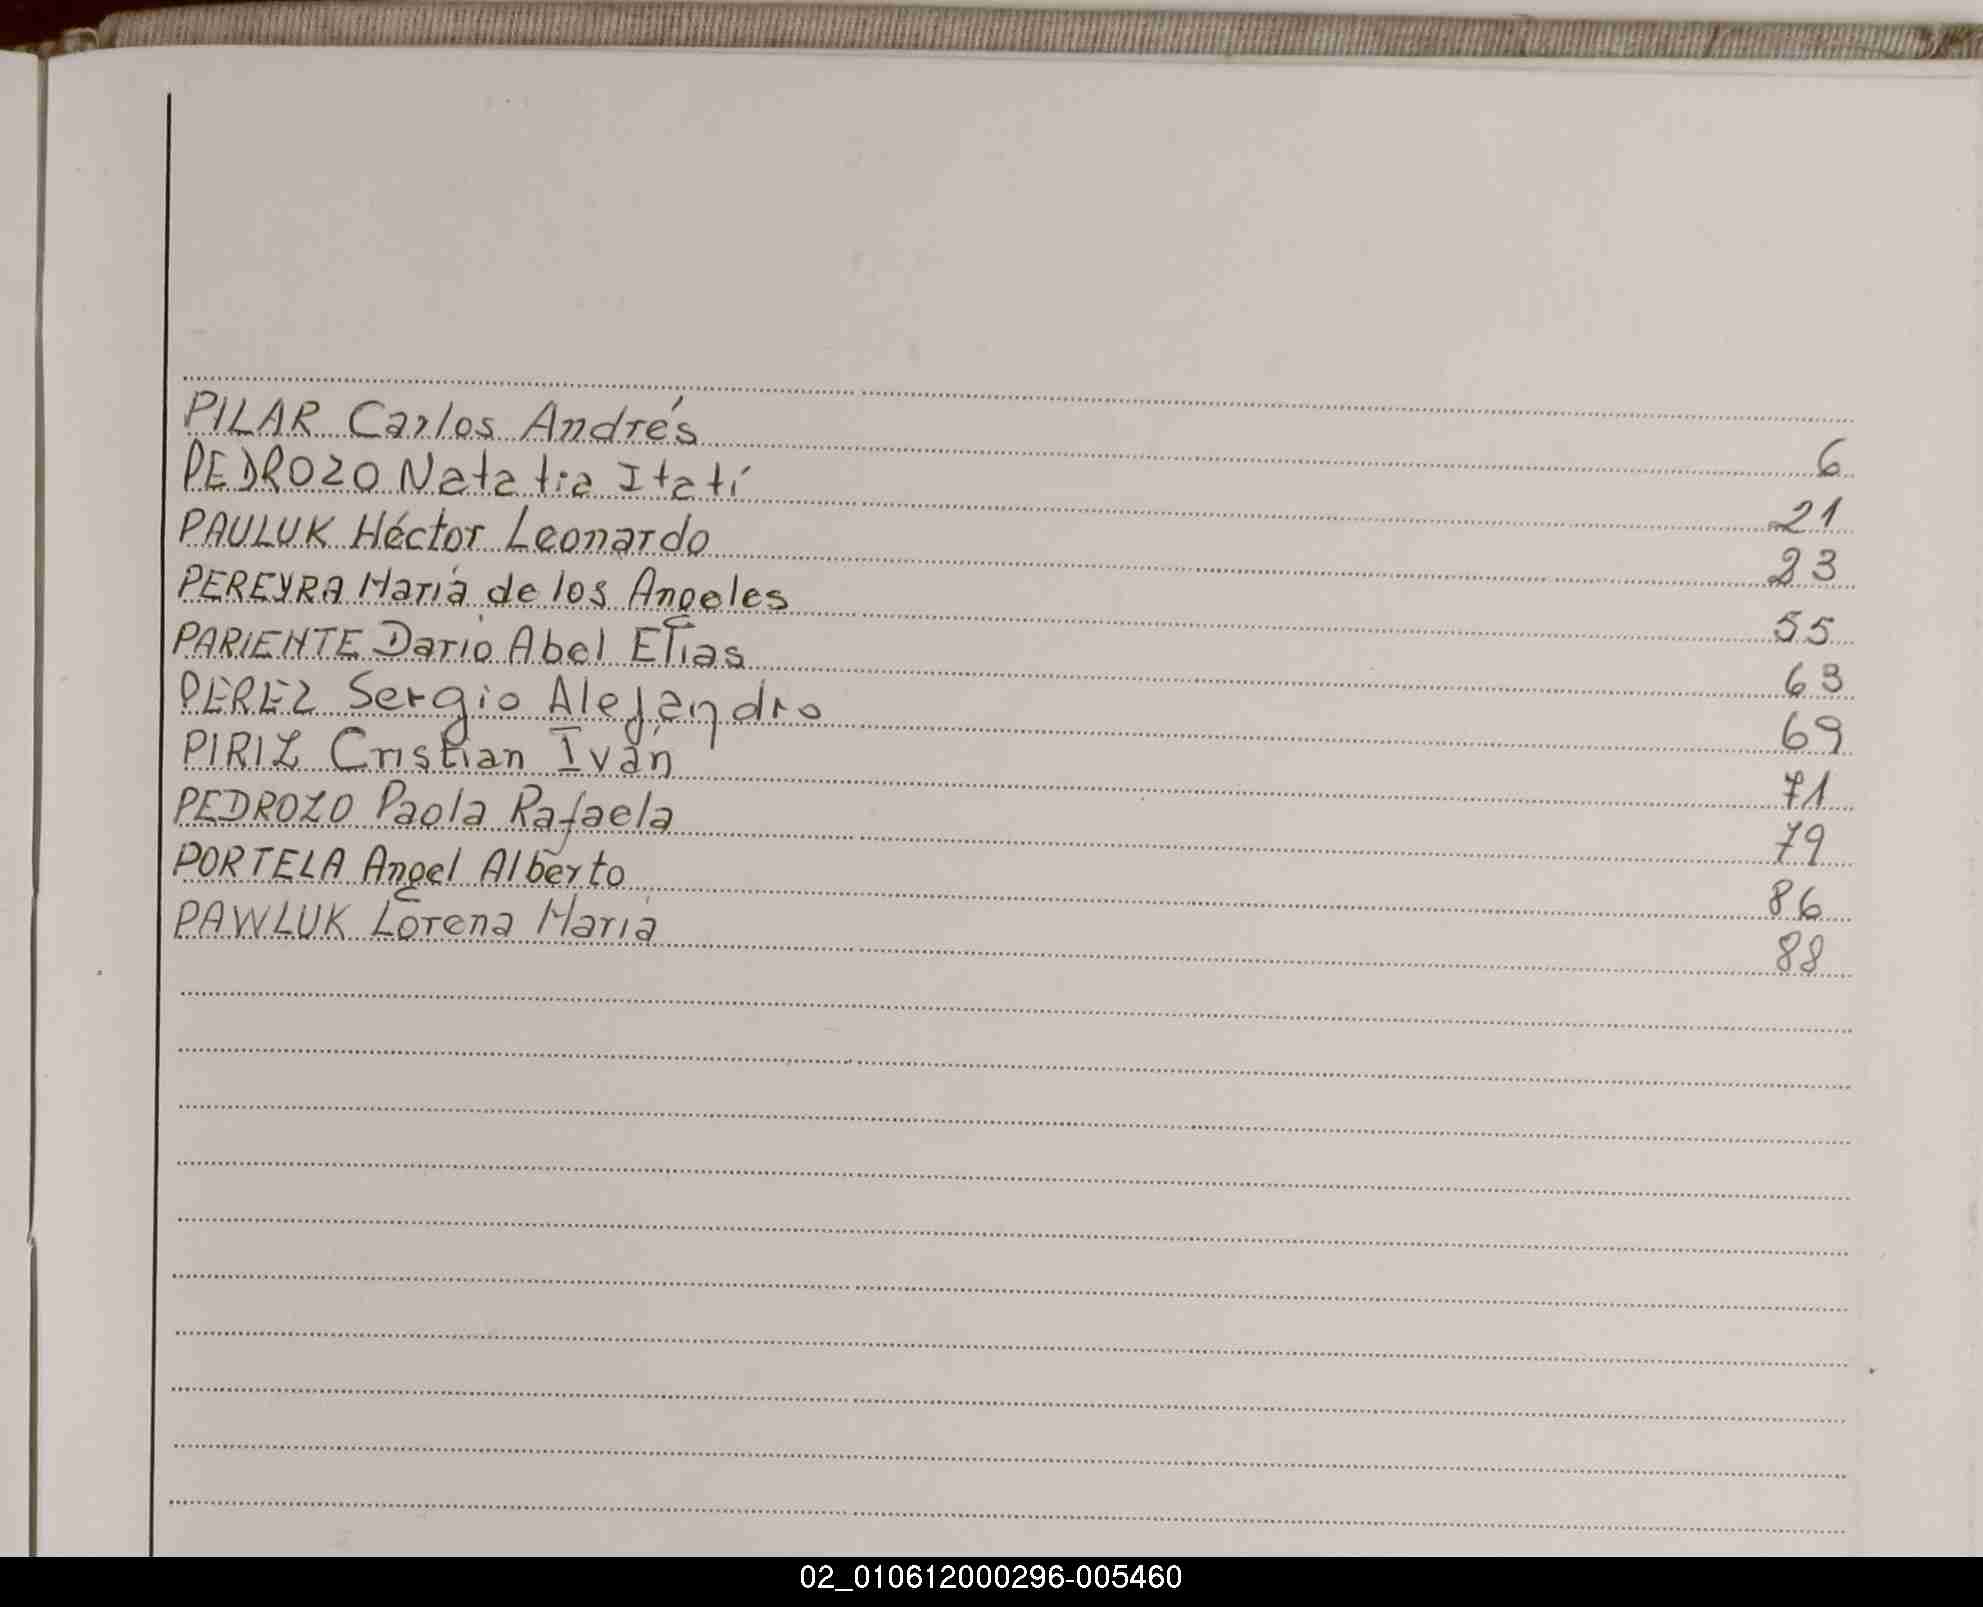 PILAR Carlos Andrés 6
PEDROZO Natalia Itatí 21
PAULUK Héctor Leonardo 23
PEREYRA María de los Angeles 55
PARIENTE Darío Abel Elías 63
PEREZ Sergio Alejandro 69
PIRIZ Cristian Iván 71
PEDROZO Paola Rafaela 79
PORTELA Angel Alberto 86
PAWLUK Lorena María 88
02_010612000296-005460